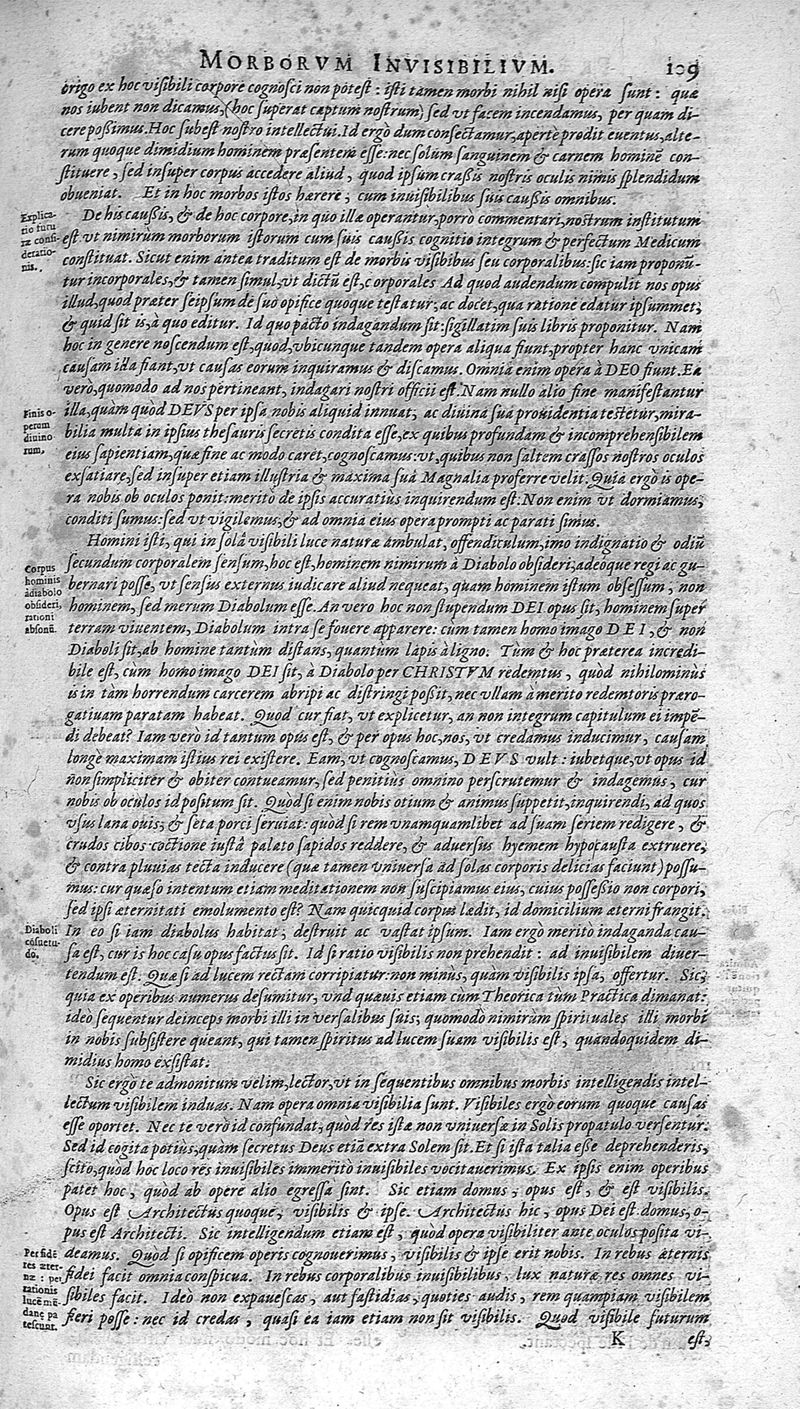 MORBORVM INVISIBILIVM. 109
origo ex hoc visibili corpore cognosci non potest : isti tamen morbi nihil nisi opera sunt : quæ
nos iubent non dicamus, (hoc superat captum nostrum) sed vt facem incendamus, per quam di-
cere poßimus. Hoc subest nostro intellectui. Id ergò dum consectamur, apertè prodit euentus, alte-
rum quoque dimidium hominem præsentem esse: nec solùm sanguinem & carnem hominē con-
stituere, sed insuper corpus accedere aliud, quod ipsum craßis nostris oculis nimis splendidum
obueniat. Et in hoc morbos istos hærere, cum inuisibilibus suis caußis omnibus.
Explica-
tio futu
ræ consi-
deratio-
nis.
De his caußis, & de hoc corpore, in quo illæ operantur, porrò commentari, nostrum institutum
est vt nimirùm morborum istorum cum suis caußis cognitio integrum & perfectum Medicum
constituat. Sicut enim antea traditum est de morbis visibilibus seu corporalibus: sic iam proponū-
tur incorporales, & tamen simul, vt dictū est, corporales Ad quod audendum compulit nos opus
illud, quod præter seipsum de suo opifice quoque testatur, ac docet, qua ratione edatur ipsummet,
& quid sit is, à quo editur. Id quo pacto indagandum sit: sigillatim suis libris proponitur. Nam
hoc in genere noscendum est, quod, vbicunque tandem opera aliqua fiunt, propter hanc vnicam
causam illa fiant, vt causas eorum inquiramus & discamus. Omnia enim opera à DEO fiunt. Ea
verò, quomodo ad nos pertineant, indagari nostri officii est. Nam nullo alio fine manifestantur
Finis o-
perum
diuino
rum.
illa, quàm quòd DEVS per ipsa nobis aliquid innuat, ac diuina sua prouidentia testetur, mira-
bilia multa in ipsius thesauris secretis condita esse, ex quibus profundam & incomprehensibilem
eius sapientiam, quæ fine ac modo caret, cognoscamus: vt, quibus non saltem crassos nostros oculos
exsatiare, sed insuper etiam illustria & maxima sua Magnalia proferre velit. Quia ergò is ope-
ra nobis ob oculos ponit: meritò de ipsis accuratiùs inquirendum est. Non enim vt dormiamus,
conditi sumus: sed vt vigilemus, & ad omnia eius opera prompti ac parati simus.
Homini isti, qui in solâ visibili luce naturæ ambulat, offendiculum, imo indignatio & odiū
Corpus
hominis
à diabolo
obsideri,
rationi
absonū.
secundum corporalem sensum, hoc est, hominem nimirum à Diabolo obsideri, adeoque regi ac gu-
bernari posse, vt sensus externus iudicare aliud nequeat, quam hominem istum obsessum, non
hominem, sed merum Diabolum esse. An vero hoc non stupendum DEI opus sit, hominem super
terram viuentem, Diabolum intra se fouere apparere: cum tamen homo imago DEI, & non
Diaboli sit, ab homine tantum distans, quantum lapis à ligno. Tùm & hoc præterea incredi-
bile est, cùm homo imago DEI sit, à Diabolo per CHRISTVM redemtus, quòd nihilominùs
is in tàm horrendum carcerem abripi ac distringi poßit, nec vllam à merito redemtoris præro-
gatiuam paratam habeat. Quod cur fiat, vt explicetur, an non integrum capitulum ei impē-
di debeat? Iam verò id tantum opus est, & per opus hoc, nos, vt credamus inducimur, causam
longè maximam istius rei existere. Eam, vt cognoscamus, DEVS vult: iubetque, vt opus id
non simpliciter & obiter contueamur, sed penitiùs omnino perscrutemur & indagemus, cur
nobis ob oculos id positum sit. Quòd si enim nobis otium & animus suppetit, inquirendi, ad quos
vsus lana ouis, & seta porci seruiat: quòd si rem vnamquamlibet ad suam seriem redigere, &
crudos cibos coctione iustâ palato sapidos reddere, & aduersùs hyemem hypocausta extruere,
& contra pluuias tecta inducere (quæ tamen vniuersa ad solas corporis delicias faciunt) possu-
mus: cur quæso intentum etiam meditationem non suscipiamus eius, cuius possessio non corpori,
sed ipsi æternitati emolumento est? Nam quicquid corpus lædit, id domicilium æterni frangit.
Diaboli
cōsuetu-
do.
In eo si iam diabolus habitat, destruit ac vastat ipsum. Iam ergò meritò indaganda cau-
sa est, cur is hoc casu opus factus sit. Id si ratio visibilis non prehendit : ad inuisibilem diuer-
tendum est. Quæ si ad lucem rectam corripiatur: non minùs, quàm visibilis ipsa, offertur. Sic,
quia ex operibus numerus desumitur, vnd quæuis etiam cùm Theorica tùm Practica dimanat:
ideò sequentur deinceps morbi illi inversalibus suis, quomodò nimirùm spirituales illi morbi
in nobis subsistere queant, qui tamen spiritus ad lucem suam visibilis est, quandoquidem di-
midius homo exsistat.
Sic ergò te admonitum velim, lector, vt in sequentibus omnibus morbis intelligendis intel-
lectum visibilem induas. Nam opera omnia visibilia sunt. Visibiles ergò eorum quoque causas
esse oportet. Nec te verò id confundat, quòd res istæ non vniuersæ in Solis propatulo versentur.
Sed id cogita potiùs, quàm secretus Deus etiā extra Solem sit. Et si ista talia esse deprehenderis,
scito, quòd hoc loco res inuisibiles immeritò inuisibiles vocitauerimus. Ex ipsis enim operibus
patet hoc, quòd ab opere alio egressa sint. Sic etiam domus, opus est, & est visibilis.
Opus est Architectus quoque, visibilis & ipse. Architectus hic, opus Dei est: domus, o-
pus est Architecti. Sic intelligendum etiam est, quòd opera visibiliter ante oculos posita vi-
Per fidē
res æter-
næ : per
rationis
lucē mū-
danę pa
tescunt.
deamus. Quòd si opificem operis cognouerimus, visibilis & ipse erit nobis. In rebus æternis
fidei facit omnia conspicua. In rebus corporalibus inuisibilibus, lux naturæ res omnes vi-
sibiles facit. Ideò non expauescas, aut fastidias, quoties audis, rem quampiam visibilem
fieri posse: nec id credas, quasi ea iam etiam non sit visibilis. Quod visibile futurum
K est,